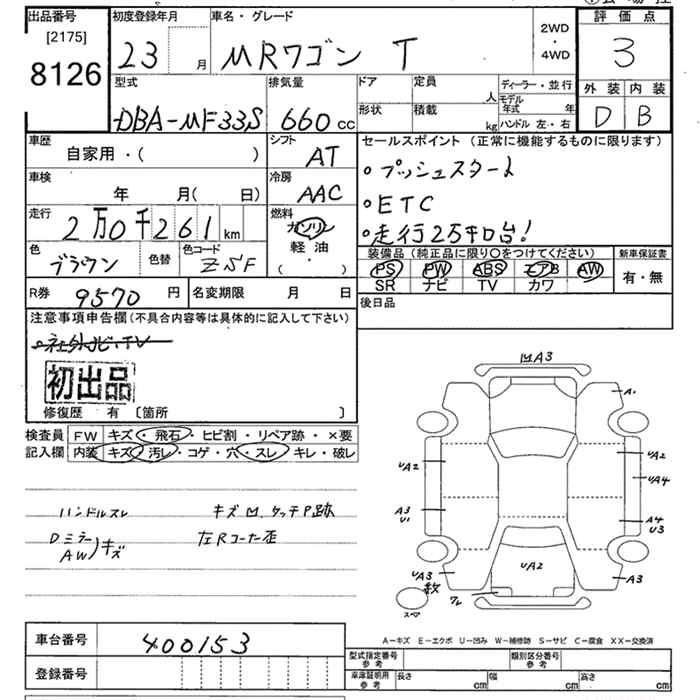 出品番号
[2175]
8126
初度登録年月
23 月
車名・グレード
MRワゴン T
2WD
・
4WD
評価点
3
外装 内装
D B
型式
DBA-MF33S
排気量
660 cc
ドア
定員
人
形状
積載
kg
ディーラー・並行
モデル年式 年
ハンドル 左・右
車歴
自家用・( )
シフト
AT
車検
年 月( 日)
冷房
AAC
走行
2万0千261 km
燃料
ガソリン
軽油
( ・ )
色
ブラウン
色替
色コード
ZSF
R券 9570 円
名変期限 月 日
セールスポイント (正常に機能するものに限ります)
・プッシュスタート
・ETC
・走行2万キロ台!
装備品(純正品に限り○をつけてください)
新車保証書
PS PW ABS エアB AW
SR ナビ TV カワ
有・無
後日品
注意事項申告欄(不具合内容等は具体的に記入して下さい)
・社外ナビ・TV
初出品
修復歴 有 〔箇所 〕
検査員 FW キズ・飛石・ヒビ割・リペア跡・×要
記入欄 内装 キズ・汚レ・コゲ・穴・スレ・キレ・破レ
ハンドルスレ
キズ凹、タッチP跡
Dミラー
AW)キズ
左Rコーナー歪
凹A3
A・
UA2
UA2
UA4
A3
U1
A4
U3
UA3
UA2
A3
ワレ
スペ
A−キズ E−エクボ U−凹み W−補修跡 S−サビ C−腐食 XX−交換済
車台番号 400153
登録番号
型式指定番号
参考
類別区分番号
参考
車庫証明用
参考
長さ cm
幅 cm
高さ cm